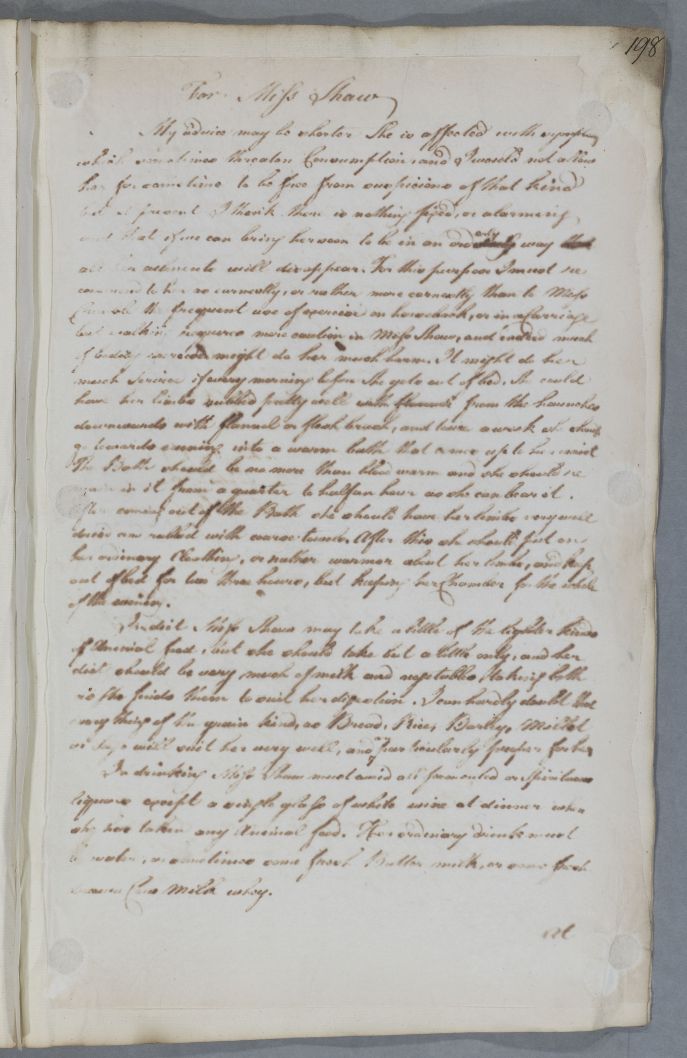 198
For Miss Shaw
My advice may be shorter She is affected with symptoms
which sometimes threaten Consumption and I would not allow
her for sometime to be free from suspicions of that kind
but at present I think there is nothing fixed, or alarming
and that if we can bring her soon to be in an orderly way
all her ailments will disappear. For this purpose I must re
commend to her as earnestly, or rather more earnestly than to Miss
the frequent use of exercise on horseback, or in a Carriage
but walking requires more caution in Miss Shaw, and indeed much
of bodily exercise might do her much harm. It might do her
much service if every morning before she gets out of bed, she could
have her limbs rubbed pretty well from the haunches
downwards with flannel or flesh brush, and twice a week she should
go towards evening into a warm bath that comes up to her waist
The Bath should be no more than blood warm and she should re
main in it from a quarter to half an hour as she can bear it.
After coming out of the Bath she should have her limbs very well
dried and rubbed with coarse towels. After this she should put on
her ordinary Cloathing, or rather warmer about her limbs, and keep
out of bed for two three hours, but keeping her Chamber for the whole
of the evening.
In diet Miss Shaw may take a little of the lighter kinds
of Animal food, but she should take but a little only, and her
diet should be very much of milk and vegetables, taking both
as she finds them to suit her digestion. I can hardly doubt that
every thing of the grain kind, as Bread, Rice, Barley, Millet
or Sago will suit her very well, and particularly proper for her
In drinking Miss Shaw must avoid all fermented or Spirituous
liquors except a single glass of white wine at dinner when
she has taken any Animal food. Her ordinary drink must
be water, or sometimes some fresh Butter milk, or some fresh
Cows Milk whey.